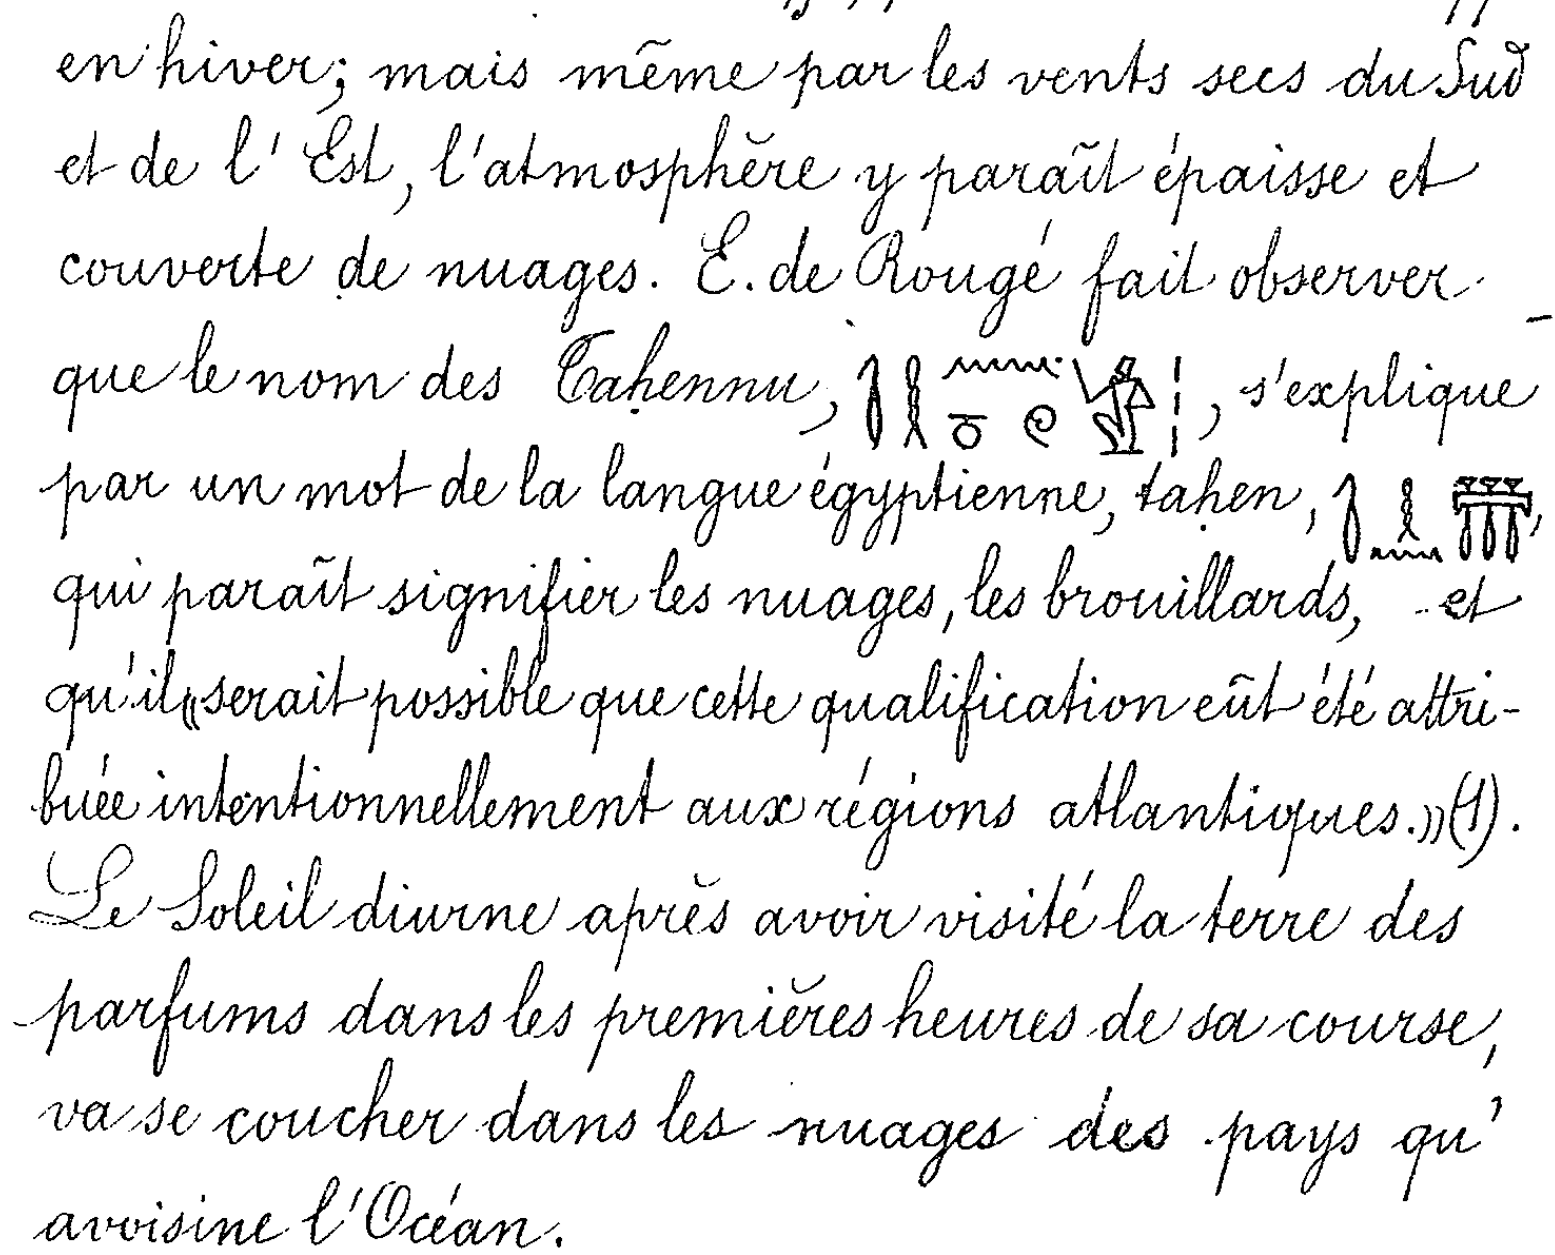 en hiver; mais même par les vents secs du Sud
et de l'Est, l'atmosphère y paraît épaisse et
couverte de nuages. E. de Rougé fait observer
que le nom des Taḥennu, , s'explique
par un mot de la langue égyptienne, taḥen, ,
qui paraît signifier les nuages, les brouillards, et
qu'il «serait possible que cette qualification eût été attri-
buée intentionnellement aux régions atlantiques.»(1).
Le Soleil diurne après avoir visité la terre des
parfums dans les premières heures de sa course,
va se coucher dans les nuages des pays qu'
avoisine l'Océan.